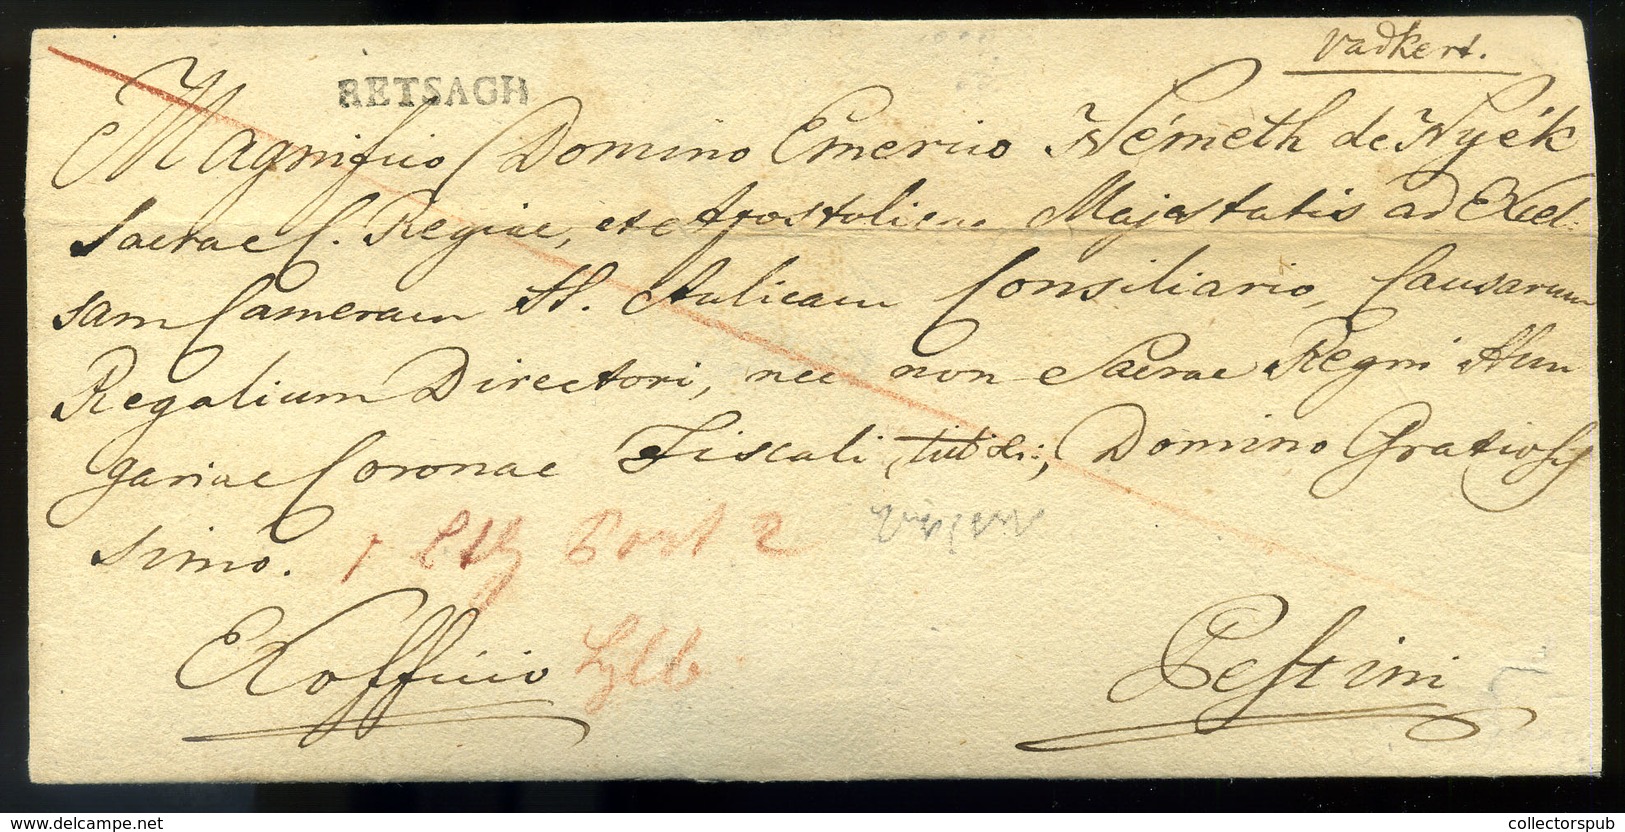 Vadkert.
RETSAGH
Magnifico Domino Emerico Németh de Nyék
Sacrae C. Regiae, et Apostolicae Majestatis ad Excel-
sam Cameram H. Aulicam Consiliario, Causarum
Regalium Directori, nec non Sacrae Regni Hun
gariae Coronae Fiscali, titt. Domino Gratiosis
simo.
Port 2
Ex officio
Pestini
www.delcampe.net
collectorspub